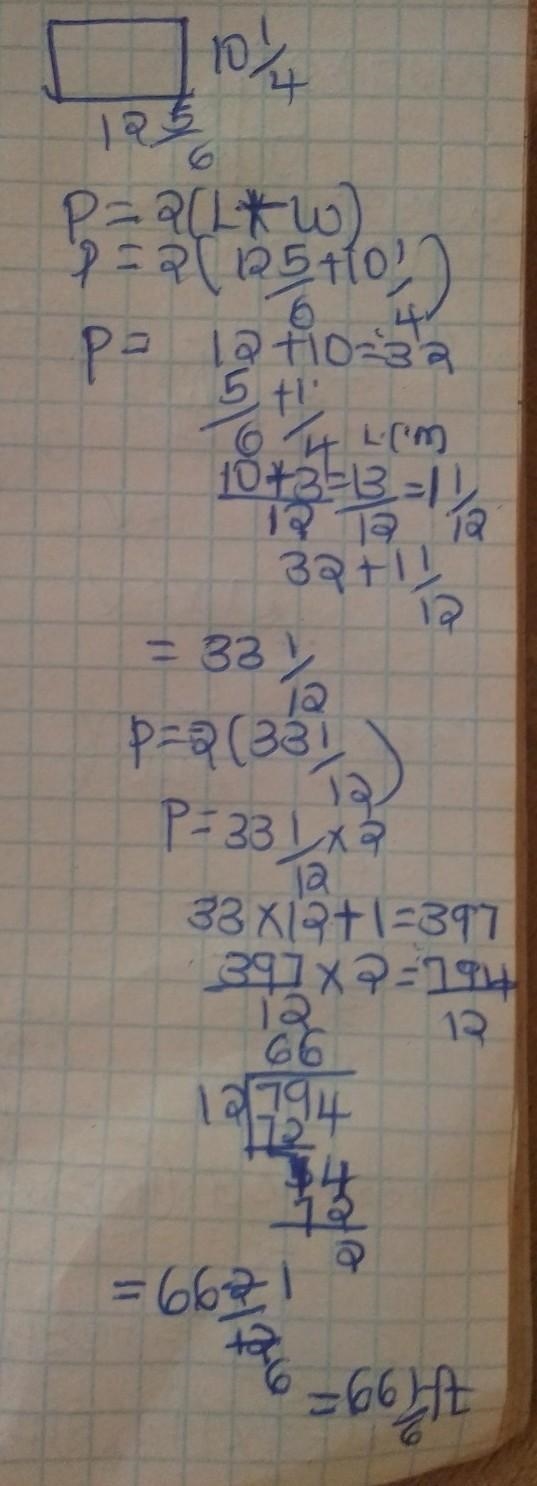 10 1/4
12 5/6
P = 2(L + W)
P = 2(12 5/6 + 10 1/4)
P = 12 + 10 = 32
5/6 + 1/4 L.C.M
10+3/12 = 13/12 = 1 1/12
32 + 1 1/12
= 33 1/12
P = 2(33 1/12)
P = 33 1/12 × 2
33 × 12 + 1 = 397
397/12 × 2 = 794/12
66
12 794
72
74
72
2
= 66 2/12 1/6
= 66 1/6 ft